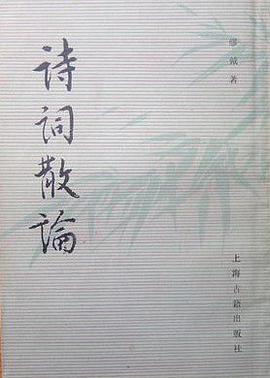 诗词散論
缪钺著
上海古籍出版社